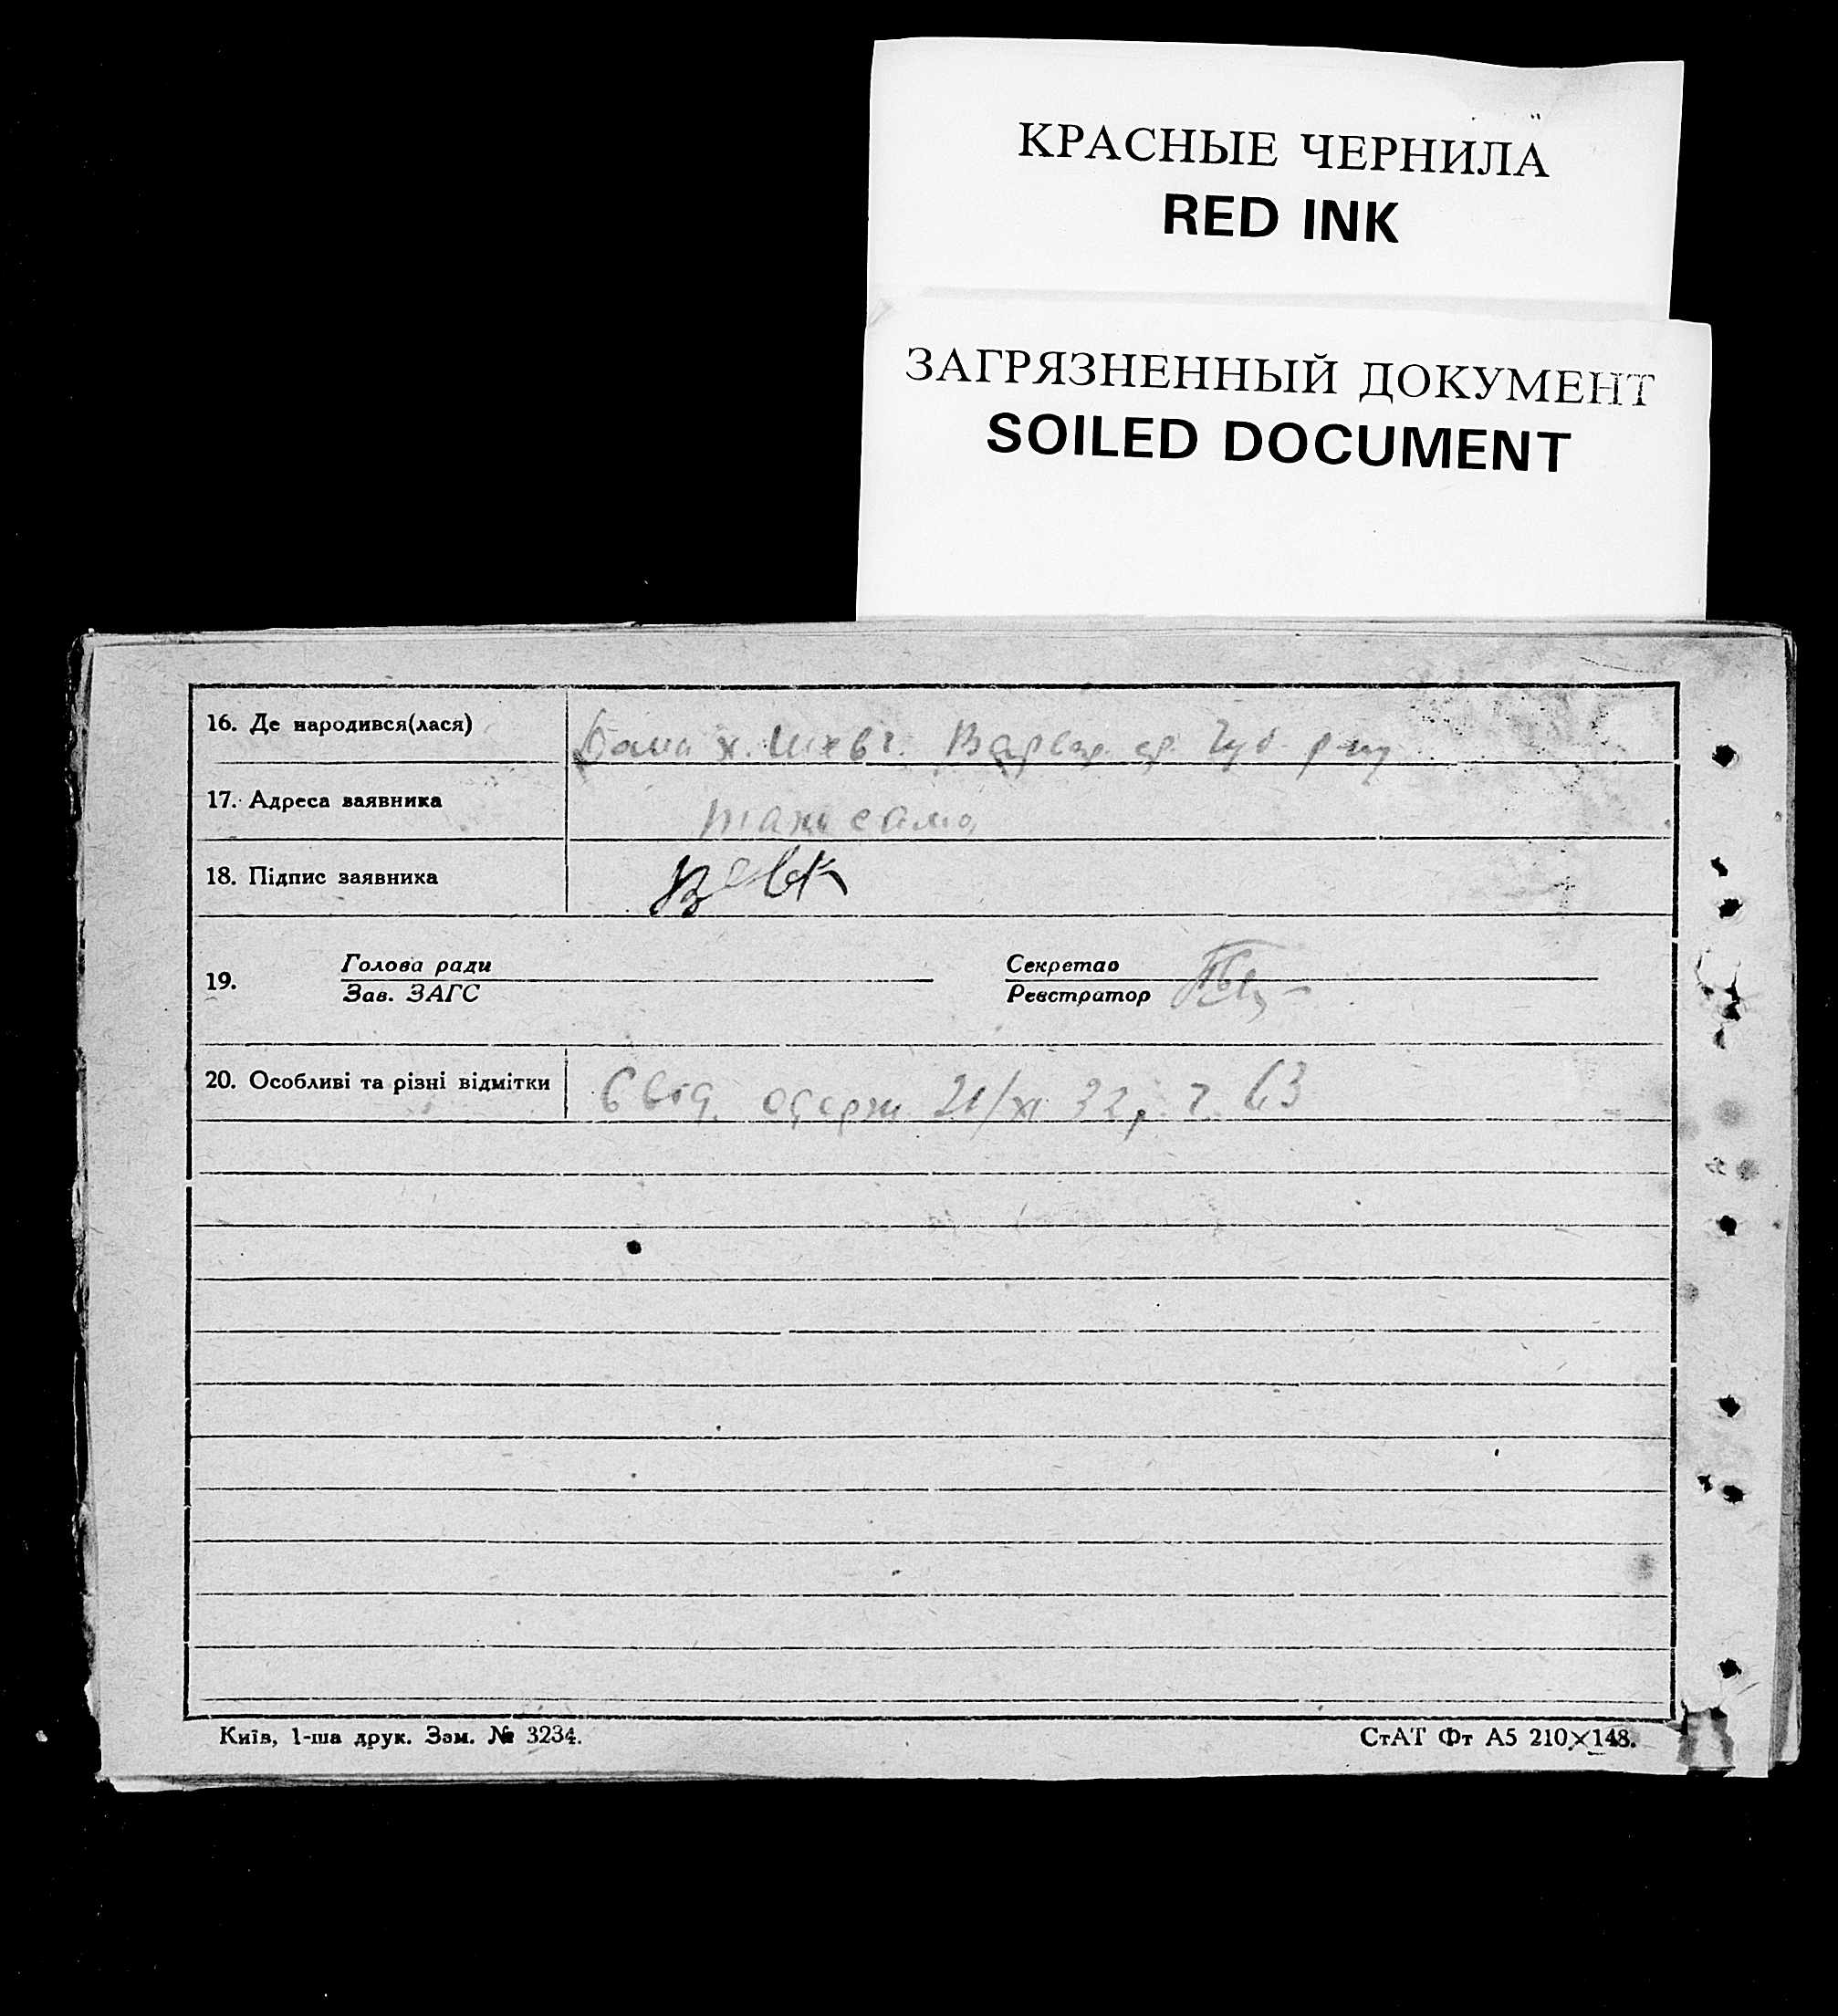 КРАСНЫЕ ЧЕРНИЛА
RED INK
ЗАГРЯЗНЕННЫЙ ДОКУМЕНТ
SOILED DOCUMENT
16. Де народився(лася) Дома х.
17. Адреса заявника такосамо
18. Підпис заявника
19. Голова ради Секретар
Зав. ЗАГС Реєстратор
20. Особливі та різні відмітки Свід. одерж 21/XI 32 р. ч. 63
Київ, 1-ша друк. Зам. № 3234. СтАТ Фт А5 210×148.